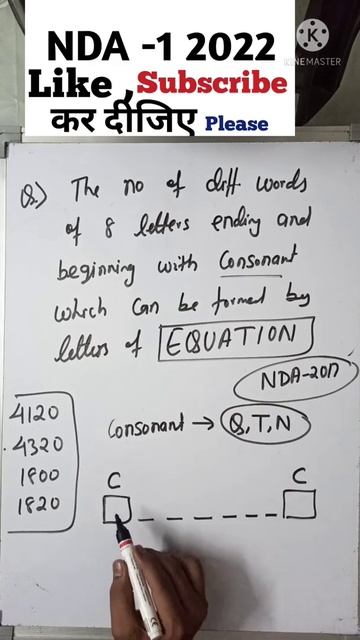 NDA -1 2022
Like , Subscribe
कर दीजिए Please
KINEMASTER
Q.) The no of diff words
of 8 letters ending and
beginning with Consonant
which can be formed by
letters of EQUATION
NDA-2017
4120
4320
1800
1820
Consonant → Q, T, N
C C